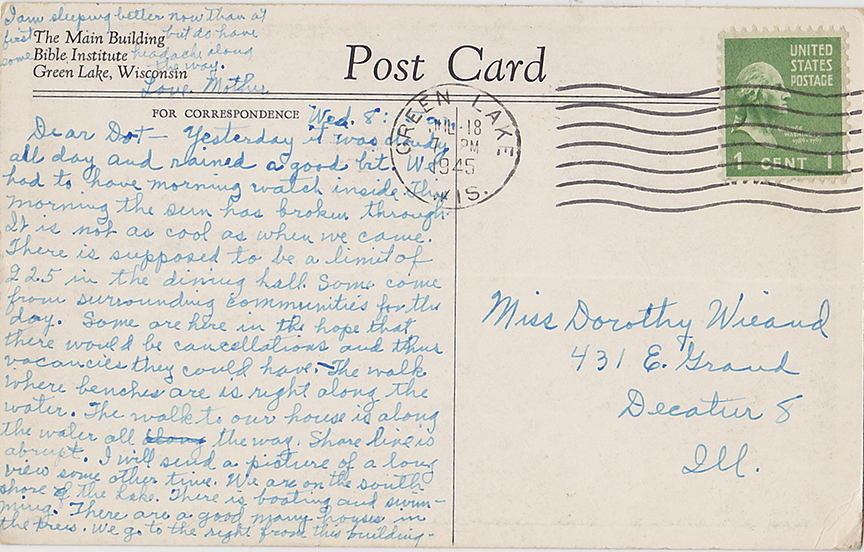 I am sleeping better now than at
first but do have
some headache along
the way.
Love Mother
The Main Building
Bible Institute
Green Lake, Wisconsin
Post Card
FOR CORRESPONDENCE
Wed. 8:
Dear Dot - Yesterday it was cloudy
all day and rained a good bit. We
had to have morning watch inside. This
morning the sun has broken through.
It is not as cool as when we came.
There is supposed to be a limit of
225 in the dining hall. Some come
from surrounding communities for the
day. Some are here in the hope that
there would be cancellations and thus
vacancies they could have. - The walk
where benches are is right along the
water. The walk to our house is along
the water all along the way. Shore line is
abrupt. I will send a picture of a long
view some other time. We are on the south
shore of the lake. There is boating and swim-
ming. There are a good many houses in
the trees. We go to the right from this building -
GREEN LAKE
JUL 18
7 PM
1945
WIS.
UNITED
STATES
POSTAGE
WASHINGTON
1 CENT 1
Miss Dorothy Wieand
431 E. Grand
Decatur 8
Ill.